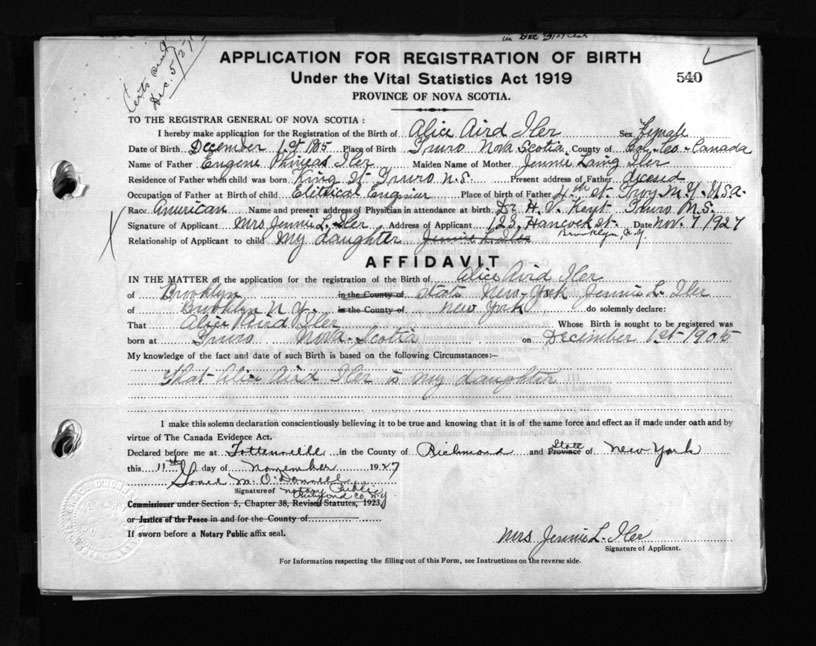 in Dec 31st
Certs and
Dec. 5/27
APPLICATION FOR REGISTRATION OF BIRTH
Under the Vital Statistics Act 1919
540
PROVINCE OF NOVA SCOTIA.
TO THE REGISTRAR GENERAL OF NOVA SCOTIA:
I hereby make application for the Registration of the Birth of Alice Aird Iler Sex Female
Date of Birth December 1st 1905 Place of Birth Truro Nova Scotia County of Col-Co-Canada
Name of Father Eugene Phineas Iler Maiden Name of Mother Jennie Laing Iler
Residence of Father when child was born King St Truro N.S. Present address of Father Decesd
Occupation of Father at Birth of child Eletrical Enginer Place of birth of Father 4th St. Troy N.Y. USA.
Race American Name and present address of Physician in attendance at birth Dr H. V. Kent Truro N.S.
Signature of Applicant Mrs Jennie L. Iler Address of Applicant 123 Hancock St. Date Nov. 7 1927
Relationship of Applicant to child My daughter Jennie L. Iler Brooklyn N.Y.
AFFIDAVIT
IN THE MATTER of the application for the registration of the Birth of Alice Aird Iler
of Brooklyn in the County of State New-York Jennie L. Iler
of Brooklyn N.Y. in the County of New York do solemnly declare:
That Alice Aird Iler Whose Birth is sought to be registered was
born at Truro Nova-Scotia on December 1st-1905
My knowledge of the fact and date of such Birth is based on the following Circumstances:—
That Alice Aird Iler is my daughter
I make this solemn declaration conscientiously believing it to be true and knowing that it is of the same force and effect as if made under oath and by
virtue of The Canada Evidence Act.
Declared before me at Tottenville in the County of Richmond and State Province of New York
this 11th day of November 1927
M. O'Donnell
Signature of Notary Public
Richmond Co. N.Y.
Commissioner under Section 5, Chapter 38, Revised Statutes, 1923,
or Justice of the Peace in and for the County of
If sworn before a Notary Public affix seal.
Mrs Jennie L. Iler
Signature of Applicant.
For Information respecting the filling out of this Form, see Instructions on the reverse side.